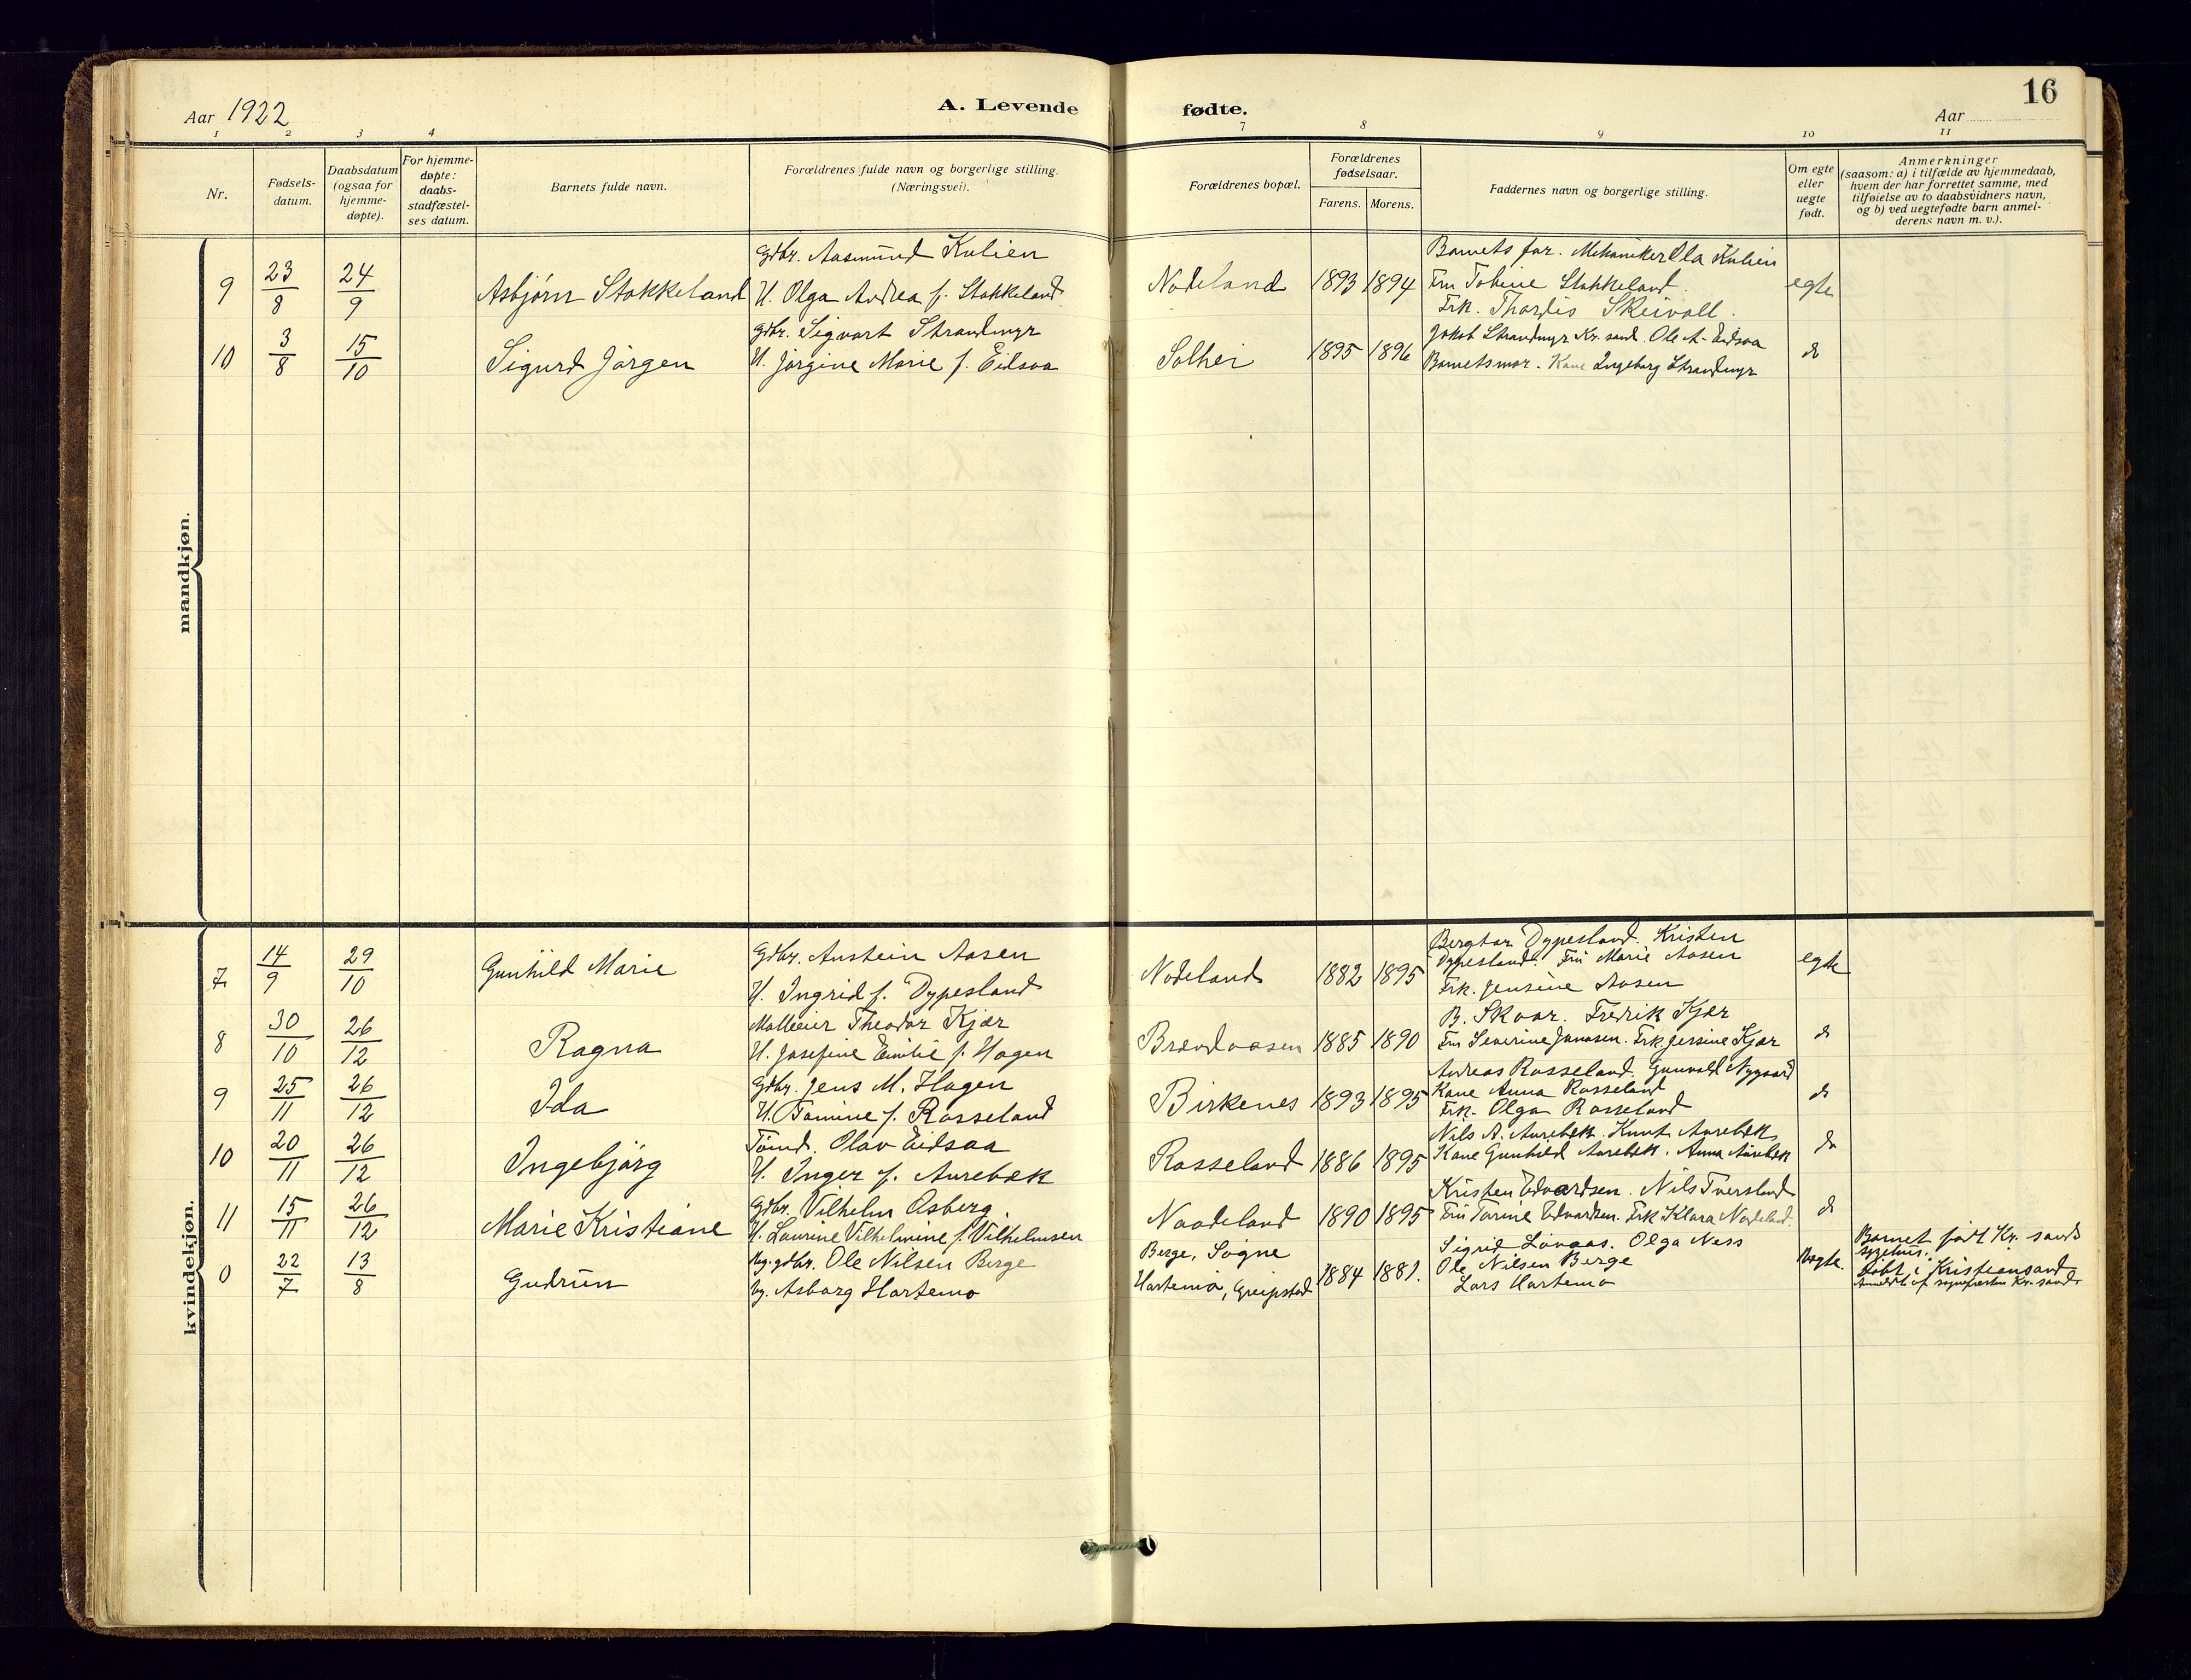 16
Aar 1922
A. Levende
fødte.
Aar
1 2 3 4 7 8 9 10 11
Nr.
Fødsels-
datum.
Daabsdatum
(ogsaa for
hjemme-
døpte).
For hjemme-
døpte:
daabs-
stadfæstel-
ses datum.
Barnets fulde navn.
Forældrenes fulde navn og borgerlige stilling.
(Næringsvei).
Forældrenes bopæl.
Forældrenes
fødselsaar.
Farens. Morens.
Faddernes navn og borgerlige stilling.
Om egte
eller
uegte
født.
Anmerkninger
(saasom: a) i tilfælde av hjemmedaab,
hvem der har forrettet samme, med
tilføielse av to daabsvidners navn,
og b) ved uegtefødte barn anmel-
derens navn m. v.).
mandkjøn.
9 23/8 24/9 Asbjørn Stokkeland
Gdbr. Aasmund Kulien
H. Olga Andrea f. Stokkeland
Nodeland 1893 1894
Barnets far. Mekaniker Ola Kulien
Fru Tobine Stokkeland.
Frk. Thordis Skeivoll.
egte
10 3/8 15/10 Sigurd Jørgen
Gdbr. Sigvart Strandmyr
H. Jørgine Marie f. Eidsaa
Solhei 1895 1896
Jakob Strandmyr Kr. sand. Ole A. Eidsaa
Barnets mor. Kone Ingeborg Strandmyr
do
kvindekjøn.
7 14/9 29/10 Gunhild Marie
Gdbr. Austein Aasen
H. Ingrid f. Dypesland
Nodeland 1882 1895
Bergtor Dypesland. Kristen
Dypesland. Fru Marie Aasen
Frk. Jensine Aasen
egte
8 30/10 26/12 Ragna
Møllleier Theodor Kjær
H. Josefine Emilie f. Hagen
Brandaasen 1885 1890
B. Skaar. Fredrik Kjær
Fru Severine Jonasen. Frk. Jensine Kjær
do
9 25/11 26/12 Ida
Gdbr. Jens M. Hagen
H. Tomine f. Rosseland
Birkenes 1893 1895
Andreas Rosseland. Gunvald Nygaard
Kone Anna Rosseland
Frk. Olga Rosseland
do
10 20/11 26/12 Ingebjørg
Tømd. Olav Eidsaa
H. Inger f. Aurebek
Rosseland 1886 1895
Nils A. Aurebek. Knut Aurebek
Kone Gunhild Aurebek. Anna Aurebek
do
11 15/11 26/12 Marie Kristiane
Gdbr. Vilhelm Åsberg.
H. Laurine Vilhelmine f. Vilhelmsen
Noodeland 1890 1895
Kristen Edvardsen. Nils Tversland
Fru Torine Edvardsen. Frk Klara Nodeland.
do
0 22/7 13/8 Gudrun
Ug. gdbr. Ole Nilsen Berge
Ug. Asborg Hortemo
Berge, Søgne
Hortemo, Greipstad 1884 1881.
Sigrid Løvaas. Olga Ness
Ole Nilsen Berge
Lars Hortemo
Uegte.
Barnet født Kr. sands
sygehus.
Døbt i Kristiansand
Anmeldt af sognepresten Kr. sand.